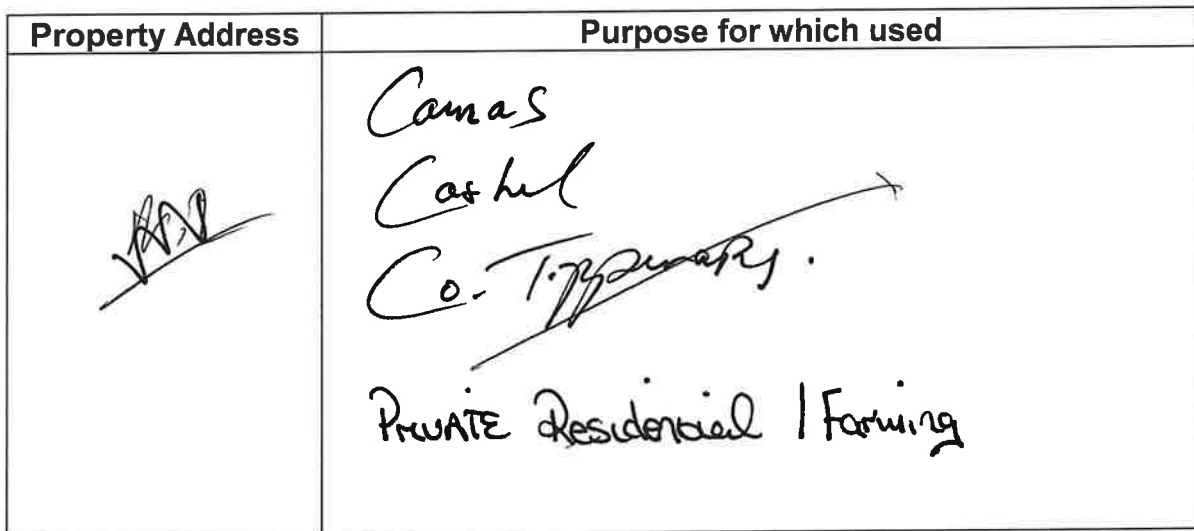 Property Address Purpose for which used
Camas
Cashel
Co. Tipperary.
PRIVATE Residencial / Farming